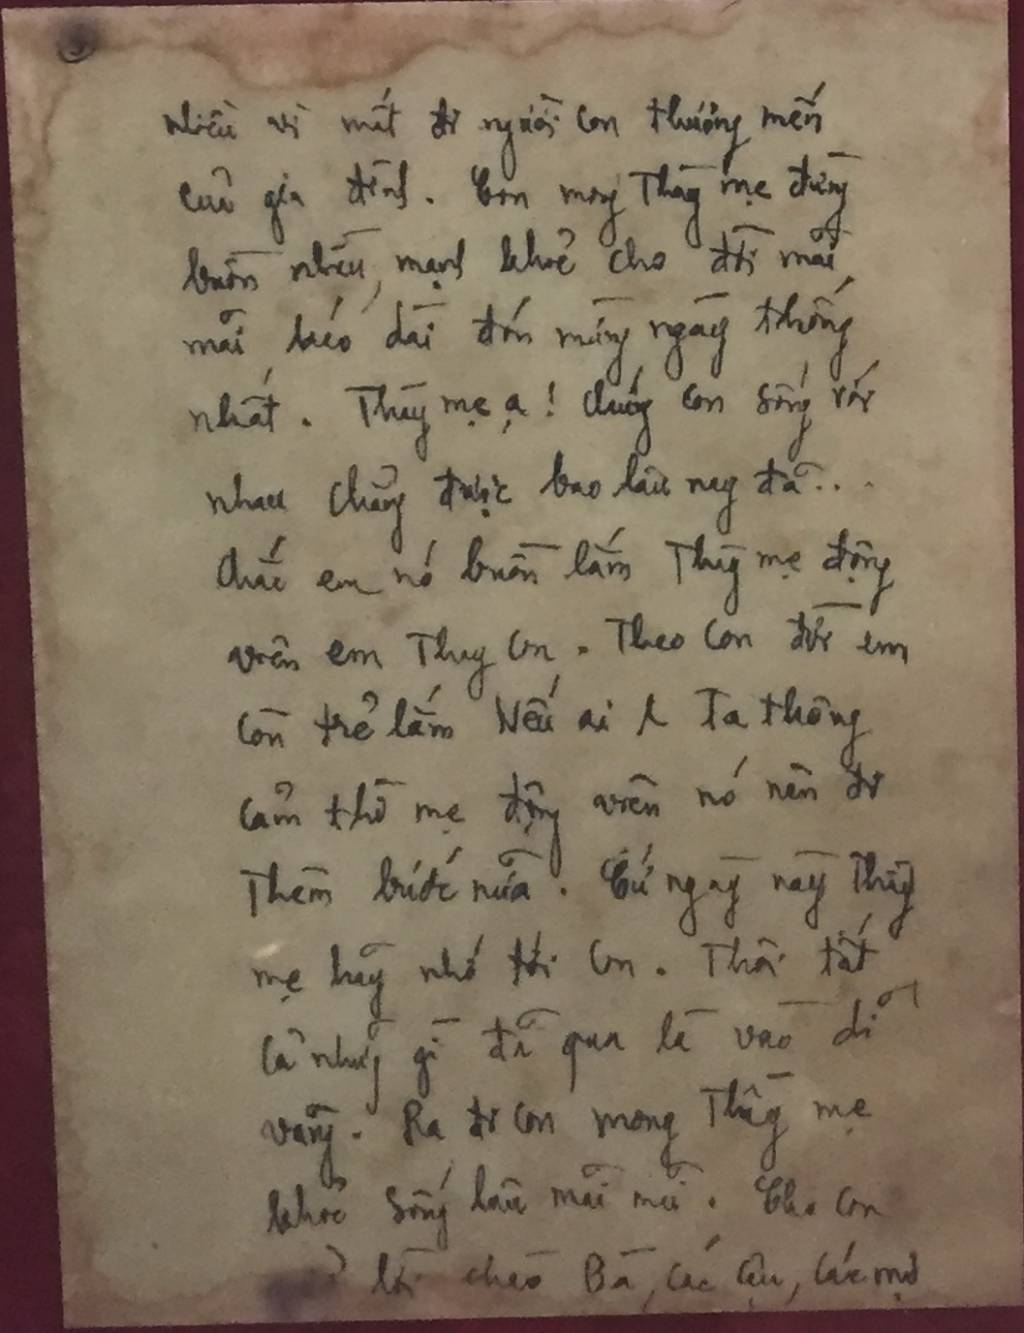 nhiều vì mất đi người con thương mến
của gia đình. Con mong Thầy mẹ đừng
buồn nhiều, mạnh khoẻ cho đời mãi
mãi kéo dài đón mừng ngày thống
nhất. Thầy mẹ ạ! chúng con sống với
nhau chẳng được bao lâu nay đã...
chắc em nó buồn lắm Thầy mẹ động
viên em Thay con. Theo con đời em
còn trẻ lắm Nếu ai Ta thông
cảm thì mẹ động viên nó nên đi
Thêm bước nữa. Cứ ngày này Thầy
mẹ hãy nhớ tới con. Thôi tất
cả những gì đã qua là vào dĩ
vãng. Ra đi con mong Thầy mẹ
khoẻ sống lâu mãi mãi. Cho con
lời chào Bà, các Cậu, các mợ